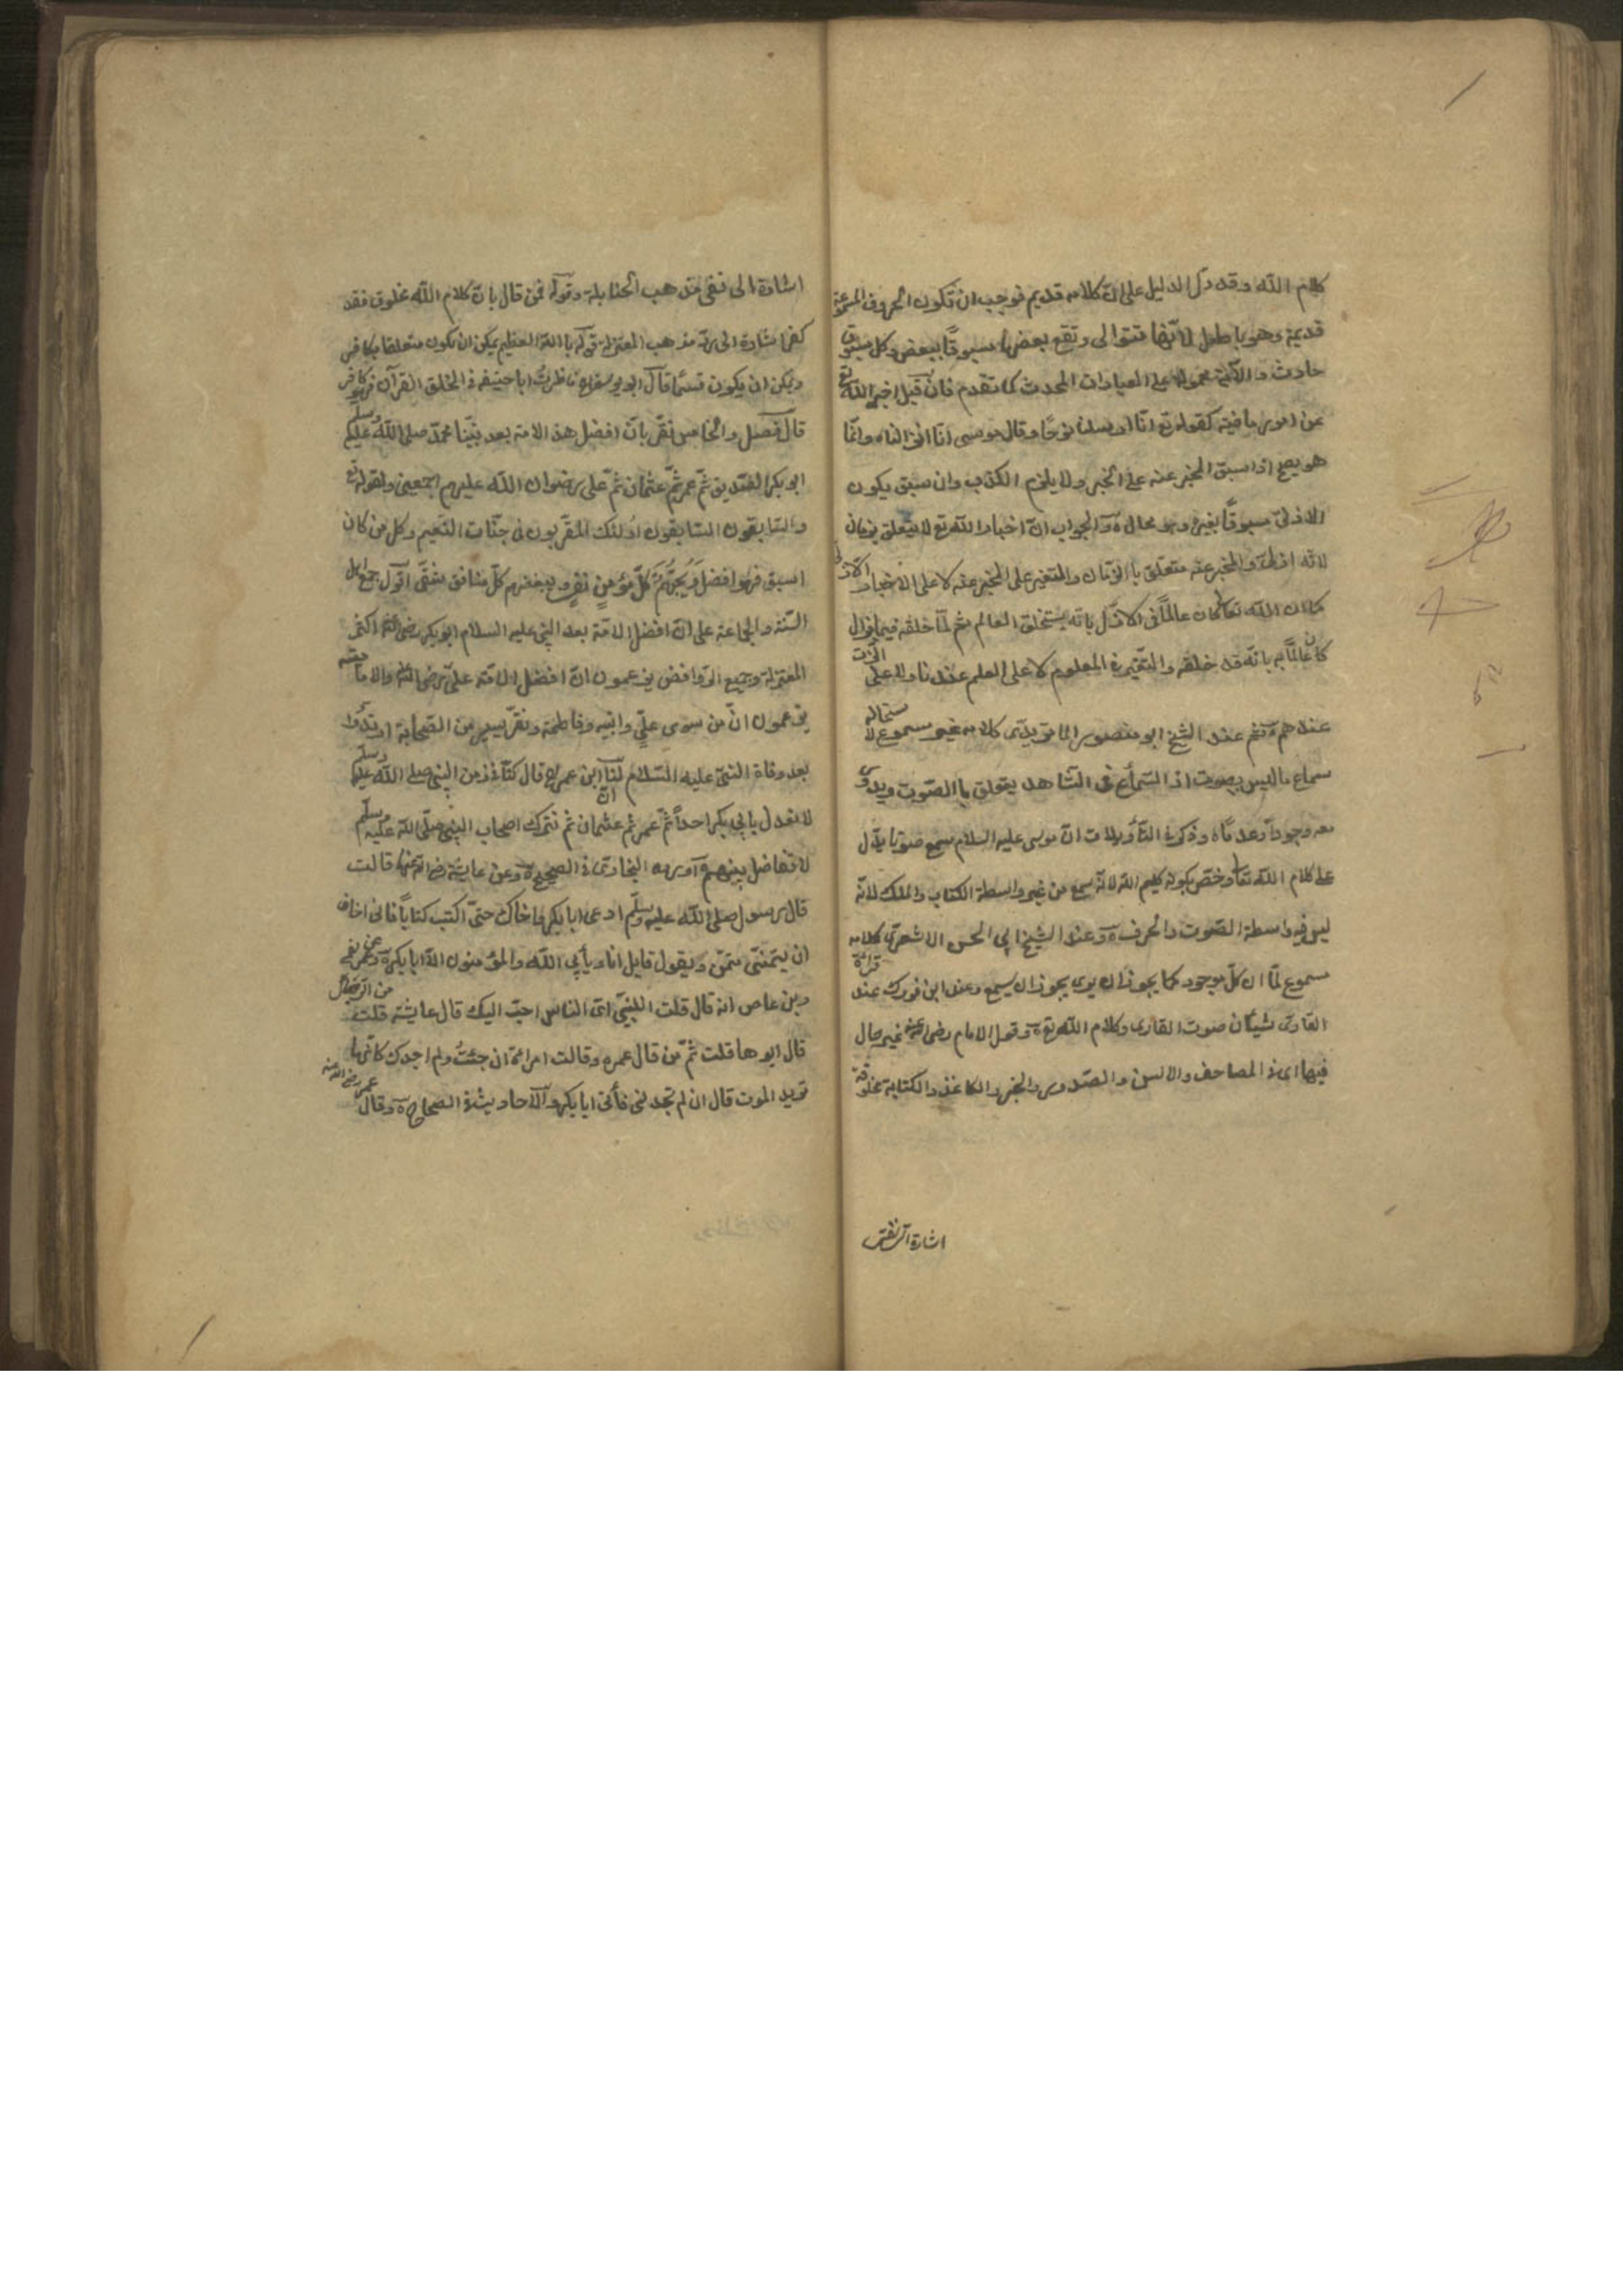 كلام الله وقد دل الدليل على ان كلامه قديم فوجب ان تكون الحروف المسموعة
قديمة وهو باطل لانها تتوالى وتقع بعضها مسبوقا ببعض وكل مسبوق
حادث والآية محمولة على العبارات المحدث كما تقدم فان قيل اخبر الله تع
عن امور ماضية كقوله تع انا ارسلنا نوحا وقال موسى انا انزلناه وانما
هو يصح اذا سبق المخبر عنه على الخبر ولا يلزم الكذب وان سبق يكون
الازلى مسبوقا بغيره وهو محال ه والجواب ان اخبار الله تع لا يتعلق بزمان
لانه ازلى والمخبر عنه متعلق بالزمان والتغير على المخبر عنه لا على الاخبار الازلى
كما ان الله تعا كان عالما فى الازل بانه يستخلق العالم ثم لما خلقه فيما يزال
كان عالما به بانه قد خلقه والتغير فى المعلوم لا على العلم عندنا والا على الذات
عندهم ه ثم عند الشيخ ابو منصور الماتريدى كلامه غير مسموع لاستحالة
سماع ما ليس بصوت اذ السماع فى الشاهد يتعلق بالصوت ويدور
معه وجودا وعدما ه وذكر فى التأويلات ان موسى عليه السلام سمع صوتا يدل
على كلام الله تعا وخص بكونه كليم الله لانه سمع من غير واسطة الكتاب والملك لانه
ليس فيه واسطة الصوت والحرف ه وعند الشيخ ابى الحسن الاشعرى كلامه
مسموع لما ان كل موجود كما يجوز ان يرى يجوز ان يسمع وعند ابن فورك عند قرائة
القارى شيئان صوت القارى وكلام الله تع ه وقول الامام رضى عنه غير حال
فيها اى فى المصاحف والالسن والصدور والحبر والكاغذ والكتابة مخلوقة
اشارة الى نفى
اشارة الى نفى مذهب الحنابلة وقوله فمن قال بان كلام الله مخلوق فقد
كفر اشارة الى رد مذهب المعتزلة قوله بالله العظيم يمكن ان يكون متعلقا بكافر
ويمكن ان يكون قسما قال ابو يوسف ناظرت ابا حنيفه فى الخلق القرآن فهو كافر
قال فصل والخامس نقر بان افضل هذا الامة بعد نبينا محمد صلى الله عليه وسلم
ابو بكر الصديق ثم عمر ثم عثمان ثم على رضوان الله عليهم اجمعين ولقوله تع
والسابقون السابقون اولئك المقربون فى جنات النعيم وكل من كان
اسبق فهو افضل ويحبهم كل مؤمن تقى ويبغضهم كل منافق شقى اقول جمع اهل
السنة والجماعة على ان افضل الامة بعد النبى عليه السلام ابو بكر رضى الله عنه اكثر
المعتزلة وجميع الروافض يزعمون ان افضل الامة على رضى الله عنه والامامة
يزعمون ان من سوى على وابنيه وفاطمة ونفر يسير من الصحابة ارتدوا
بعد وفاة النبى عليه السلام لنا ان ابن عمر قال كنا فى زمن النبى صلى الله عليه وسلم
لا نعدل بابى بكر احدا ثم عمر ثم عثمان ثم نترك اصحاب النبى صلى الله عليه وسلم
لا نفاضل بينهم ه آورده البخارى فى الصحيح ه وعن عايشة رضى الله عنها قالت
قال رسول صلى الله عليه وسلم ادعى ابا بكر اخاك حتى اكتب كتابا فانى اخاف
ان يتمنى متمن ويقول قايل انا ويأبى الله والمؤمنون الا ابا بكر ه وعن عمر
وبن عاص انه قال قلت للنبى اى الناس احب اليك قال عايشة قلت من الرجال
قال ابوها قلت ثم من قال عمر ه وقالت امرائة ان جئت ولم اجدك كانها
تريد الموت قال ان لم تجدنى فأتى ابا بكر والاحاديث فى الصحاح ه وقال عمر رضى الله عنه